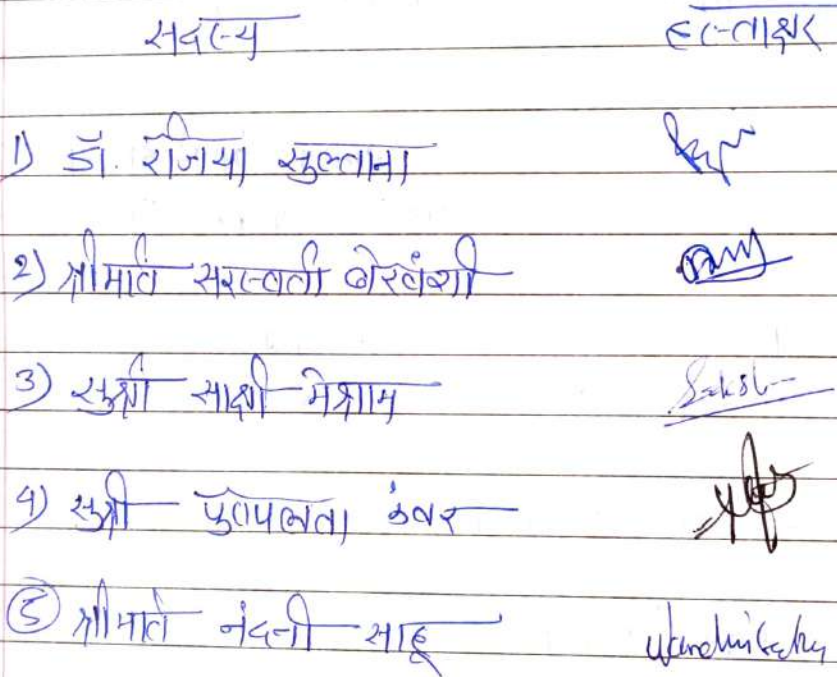 सदस्य हस्ताक्षर
1) डॉ. रजिया सुल्ताना
2) श्रीमति सरस्वती बेरवंशी
3) सुश्री साक्षी मेश्राम Sakshi
4) सुश्री पुष्पलता कंवर
5 श्रीमति नंदनी साहू Nandni Sahu